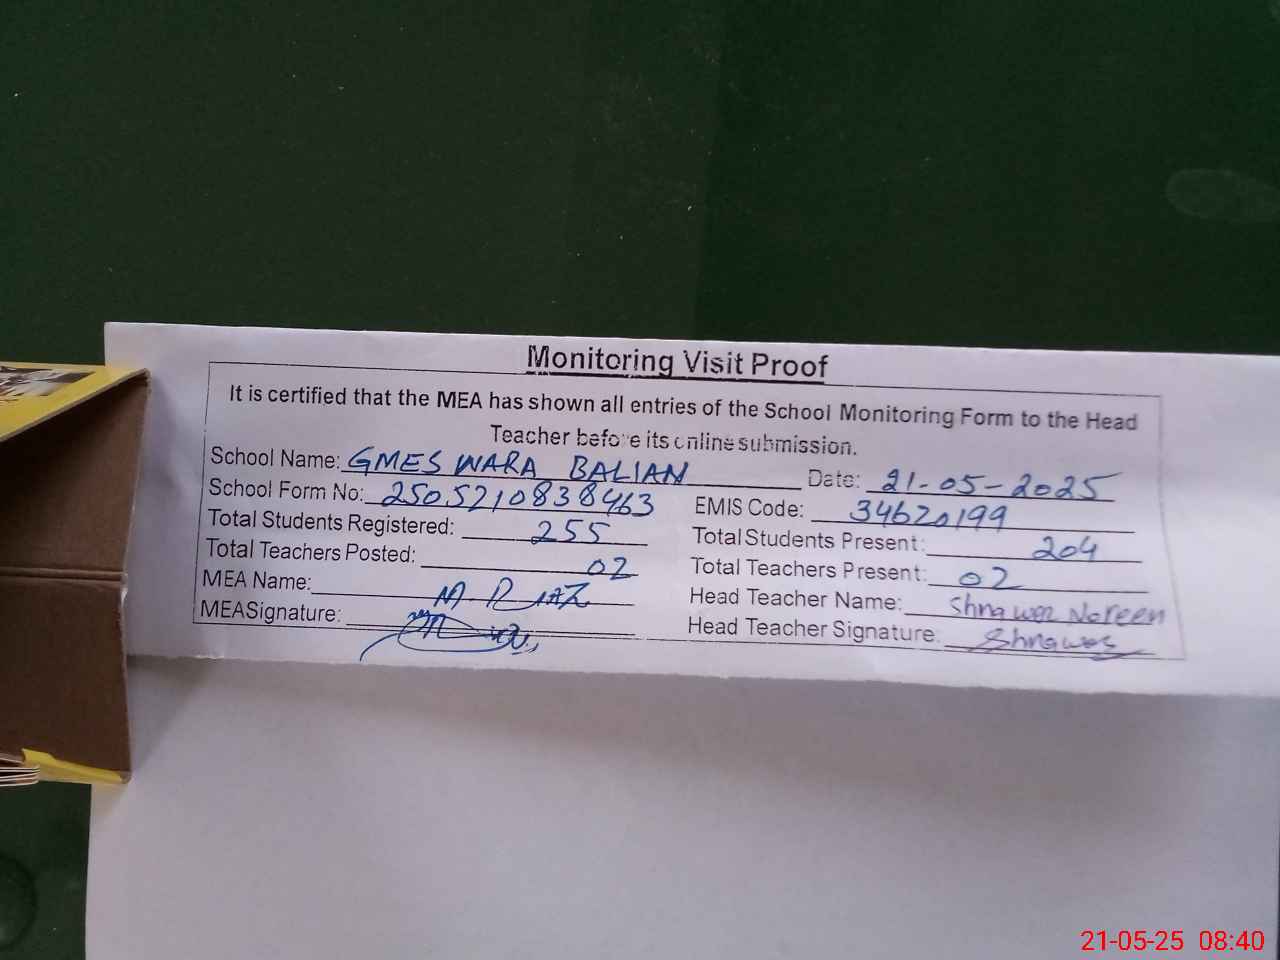 Monitoring Visit Proof
It is certified that the MEA has shown all entries of the School Monitoring Form to the Head
Teacher before its online submission.
School Name: GMES WARA BALIAN Date: 21-05-2025
School Form No: 2505210838463 EMIS Code: 34620199
Total Students Registered: 255 Total Students Present: 204
Total Teachers Posted: 02 Total Teachers Present: 02
MEA Name: M. RIAZ Head Teacher Name: Shnawer Noreen
MEA Signature: Head Teacher Signature: Shnawer
21-05-25 08:40